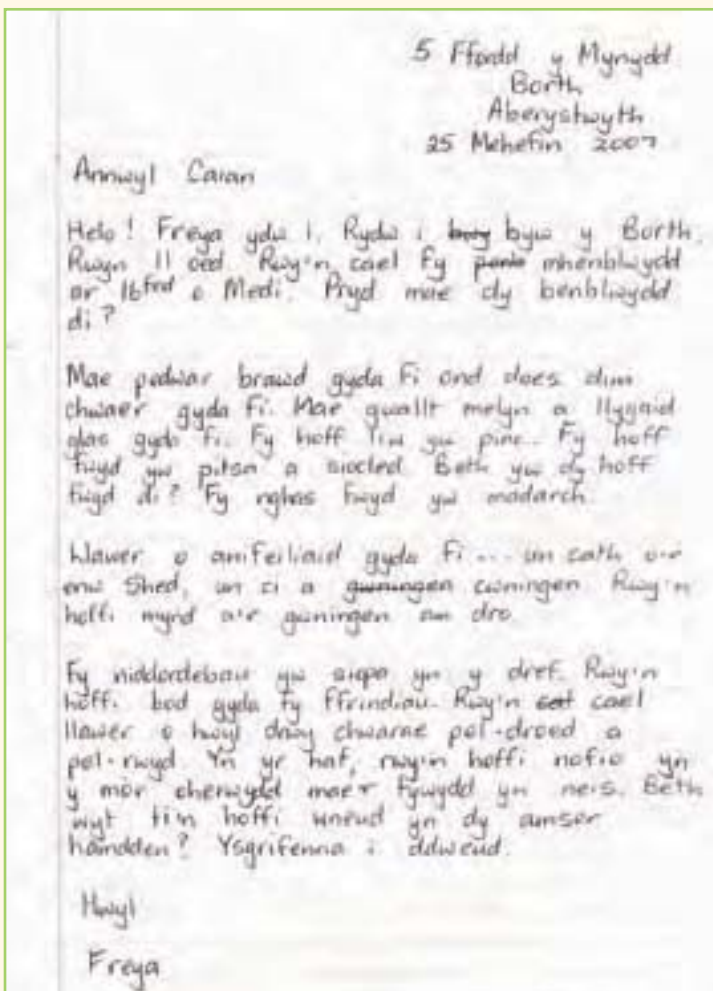 5 Ffordd y Mynydd
Borth
Aberystwyth
25 Mehefin 2007
Annwyl Caian
Helo! Freya ydw i. Rydw i byw y Borth.
Rwyn 11 oed. Rwy'n cael fy mhenblwydd
ar 16fed o Medi. Pryd mae dy benblwydd
di?
Mae pedwar brawd gyda fi ond does dim
chwaer gyda fi. Mae gwallt melyn a llygaid
glas gyda fi. Fy hoff liw yw pinc. Fy hoff
fwyd yw pitsa a siocled. Beth yw dy hoff
fwyd di? Fy nghas fwyd yw madarch.
Llawer o anifeiliaid gyda fi... un cath o'r
enw Shed, un ci a gwningen cwningen. Rwy'n
hoffi mynd a'r gwningen am dro
Fy niddordebau yw siopa yn y dref. Rwy'n
hoffi bod gyda fy ffrindiau. Rwy'n cael
llawer o hwyl drwy chwarae pel-droed a
pel-rwyd. Yn yr haf, rwy'n hoffi nofio yn
y môr oherwydd mae'r tywydd yn neis. Beth
wyt ti'n hoffi wneud yn dy amser
hamdden? Ysgrifenna i ddweud.
Hwyl
Freya